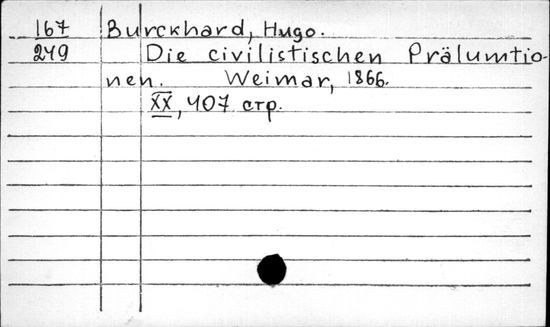 167 Burckhard, Hugo.
249 Die civilistischen Prälumtio-
nen. Weimar, 1866.
XX, 407 стр.